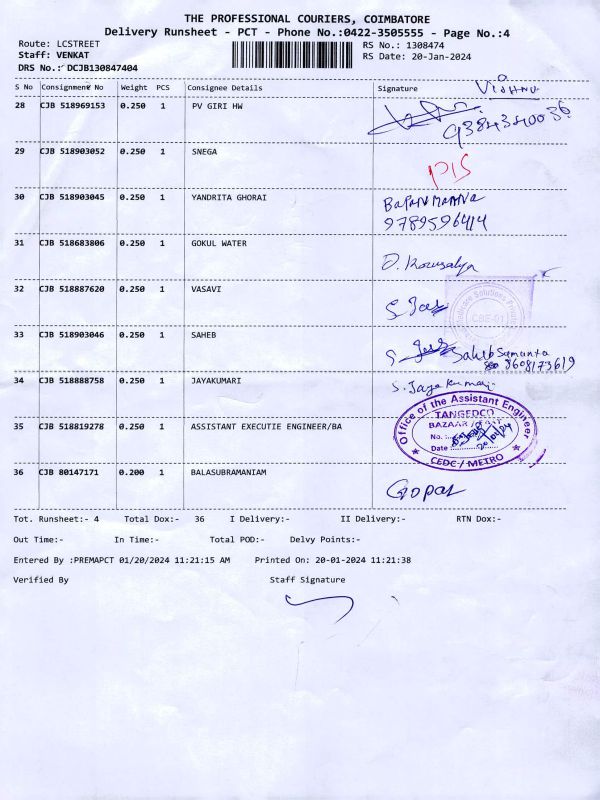 THE PROFESSIONAL COURIERS, COIMBATORE
Delivery Runsheet - PCT - Phone No.:0422-3505555 - Page No.:4
Route: LCSTREET RS No.: 1308474
Staff: VENKAT RS Date: 20-Jan-2024
DRS No.: DCJB130847404
S No Consignment No Weight PCS Consignee Details Signature
VISHNU
28 CJB 518969153 0.250 1 PV GIRI HW
9384340036
29 CJB 518903052 0.250 1 SNEGA
30 CJB 518903045 0.250 1 YANDRITA GHORAI
9789596414
31 CJB 518683806 0.250 1 GOKUL WATER
D. Kowsalya
32 CJB 518887620 0.250 1 VASAVI
CBE-01
33 CJB 518903046 0.250 1 SAHEB
Sahib Samanta
8608173619
34 CJB 518888758 0.250 1 JAYAKUMARI S. Jayakumari
35 CJB 518819278 0.250 1 ASSISTANT EXECUTIE ENGINEER/BA
Office of the Assistant Engineer
TANGEDCO
BAZAAR
No.
Date
CEDC / METRO
36 CJB 80147171 0.200 1 BALASUBRAMANIAM
Gopal
Tot. Runsheet:- 4 Total Dox:- 36 I Delivery:- II Delivery:- RTN Dox:-
Out Time:- In Time:- Total POD:- Delvy Points:-
Entered By :PREMAPCT 01/20/2024 11:21:15 AM Printed On: 20-01-2024 11:21:38
Verified By Staff Signature